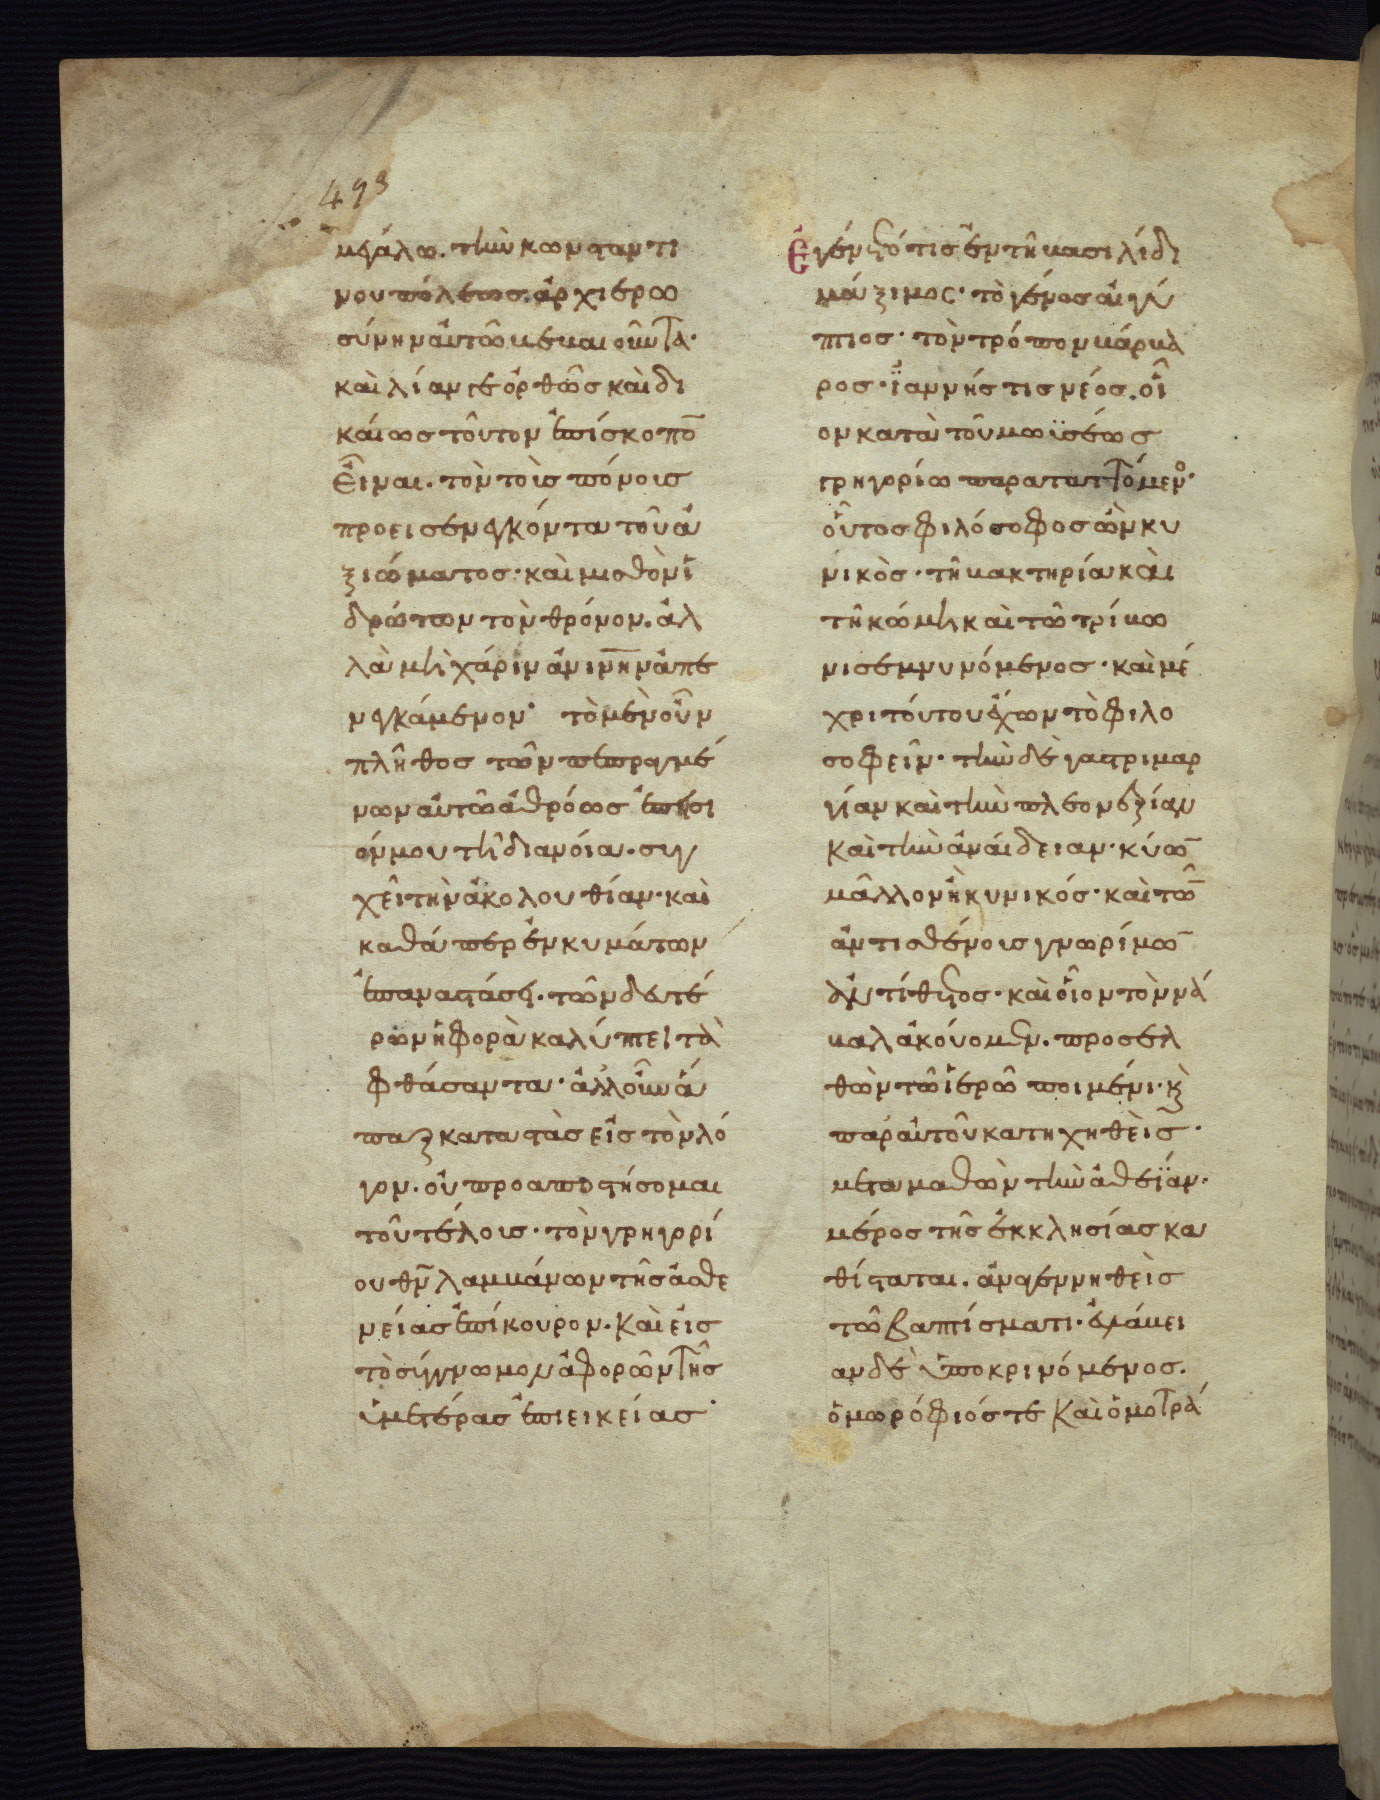 493
μεγάλω. τὴν κωνσταντι
νουπόλεως. ἀρχιερω
σύνην αὐτῶ βεβαιοῦντα·
καὶ λίαν γε ὀρθῶς καὶ δι
καίως τοῦτον ἐπίσκοπον
εἶναι. τὸν τοῖς πόνοις
προεισενεγκόντα τοῦ ἀ
ξιώματος· καὶ μισθὸν ἱ
δρώτων τὸν θρόνον. ἀλ
λὰ μὴ χάριν ἀνινῆν ἀπε
νεγκάμενον· τὸ μὲν οὖν
πλῆθος τῶν πεπραγμέ
νων αὐτῶ ἀθρόως ἐπεισι
όν μου τῆ διανοία. συγ
χεῖ τὴν ἀκολουθίαν· καὶ
καθάπερ ἐν κυμάτων
ἐπαναστάσει. τῶν δευτέ
ρων ἡ φορὰ καλύπτει τὰ
φθάσαντα· ἀλλ' οὖν ἅ
παξ καταστὰς εἰς τὸν λό
γον. οὐ προαποστήσομαι
τοῦ τέλους· τὸν γρηγορί
ου θν λαμβάνων τῆς ἀσθε
νείας ἐπίκουρον. καὶ εἰς
τὸ σύγγνωμον ἀφορῶν τῆς
ὑμετέρας ἐπιεικείας·
Ἐγένετό τις ἐν τῆ βασιλίδι
μάξιμος· τὸ γένος αἰγύ
πτιος· τὸν τρόπον βάρβα
ρος· ἰαννής τις νέος. οἷ
ον κατὰ τοῦ μωϋσέως
γρηγορίω παραταττόμενος·
οὗτος φιλόσοφος ὢν κυ
νικὸς· τῆ βακτηρία καὶ
τῆ κόμη καὶ τῶ τρίβω
νι σεμνυνόμενος· καὶ μέ
χρι τούτου ἔχων τὸ φιλο
σοφεῖν· τὴν δὲ γαστριμαρ
γίαν καὶ τὴν πλεονεξίαν
καὶ τὴν ἀναίδειαν· κύων
μᾶλλον ἢ κυνικός· καὶ τῶν
ἀντισθένους γνωρίμων
ἀντίθετος· καὶ οἷον τὸν νά
βαλ ἀκούομεν. προσελ
θὼν τῶ ἱερῶ ποιμένι· κ
παρ' αὐτοῦ κατηχηθεὶς·
μεταμαθὼν τὴν ἀθεΐαν·
μέρος τῆς ἐκκλησίας κα
θίσταται. ἀναγεννηθεὶς
τῶ βαπτίσματι· εὐλάβει
αν δὲ ὑποκρινόμενος.
ὁμωρόφιός τε καὶ ὁμοτρά